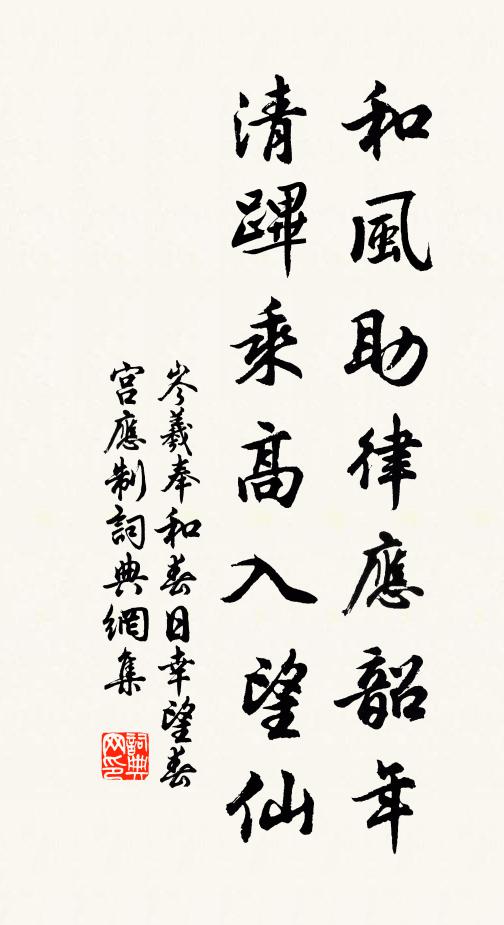 和風助律應韶年
清蹕乘高入望仙
岑羲奉和春日幸望春
宮應制詞典網集
詞典
网印